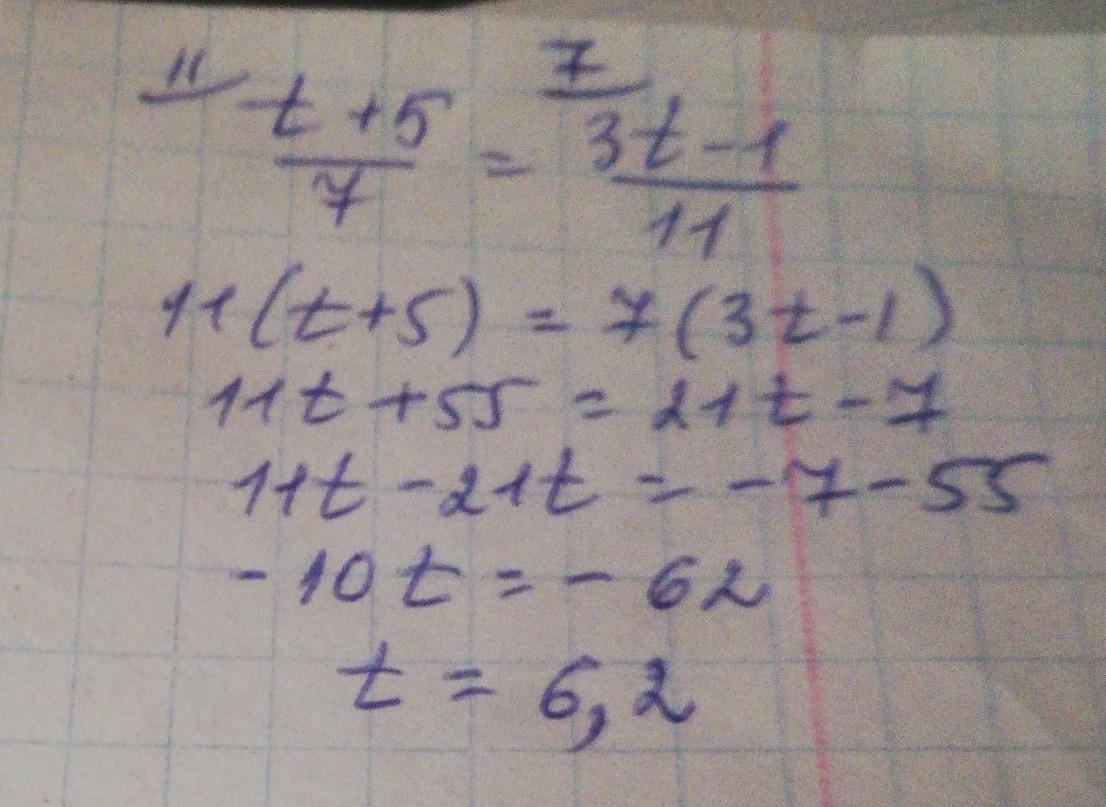 11 (t+5)/7 = 7 (3t-1)/11
11(t+5) = 7(3t-1)
11t+55 = 21t-7
11t-21t = -7-55
-10t = -62
t = 6,2